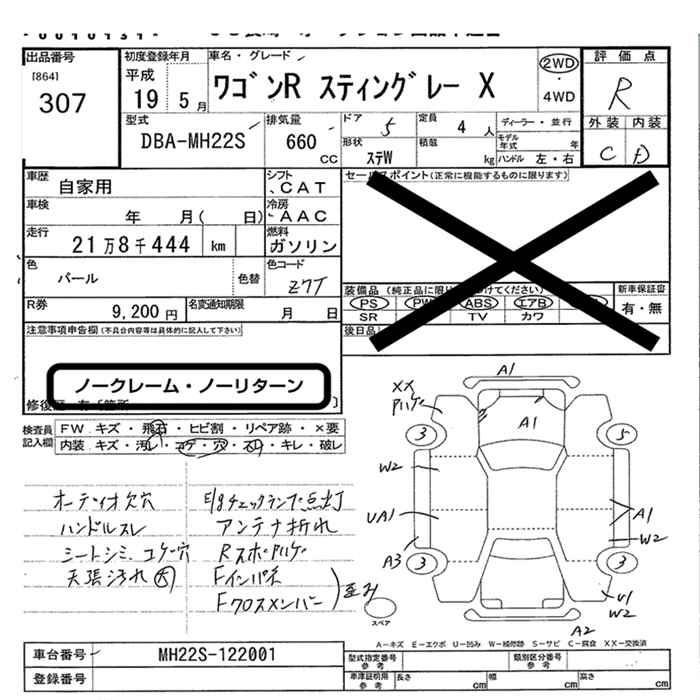 出品番号
[864]
307
初度登録年月
平成
19 5月
車名・グレード
ワゴンR スティングレー X
2WD
4WD
評価点
R
外装 内装
C D
型式
DBA-MH22S
排気量
660
CC
ドア
5
定員
4 人
形状
ステW
積載
kg
ディーラー・並行
モデル年式 年
ハンドル 左・右
車歴
自家用
シフト
CAT
車検
年 月( 日)
冷房
AAC
走行
21万8千444 km
燃料
ガソリン
色
パール
色替
色コード
Z7T
R券
9,200円
名変通知期限
月 日
セールスポイント(正常に機能するものに限ります)
装備品
PS PW ABS エアB
SR TV カワ
新車保証書
有・無
後日品
注意事項申告欄(不具合内容等は具体的に記入して下さい)
ノークレーム・ノーリターン
検査員記入欄
FW キズ・飛石・ヒビ割・リペア跡・×要
内装 キズ・汚レ・コゲ・穴・スレ・キレ・破レ
オーディオ欠穴
ハンドルスレ
シートシミ、コゲ穴
天張汚れ 大
E/gチェックランプ点灯
アンテナ折れ
Fインパネ
Fクロスメンバー
A1
XX
A1
3
5
W2
UA1
A1
W2
A3
3
3
U1
W2
A2
スペア
A-キズ E-エクボ U-凹み W-補修跡 S-サビ C-腐食 XX-交換済
車台番号
MH22S-122001
登録番号
型式指定番号
参考
類別区分番号
参考
車庫証明用
参考
長さ
cm
幅
cm
高さ
cm